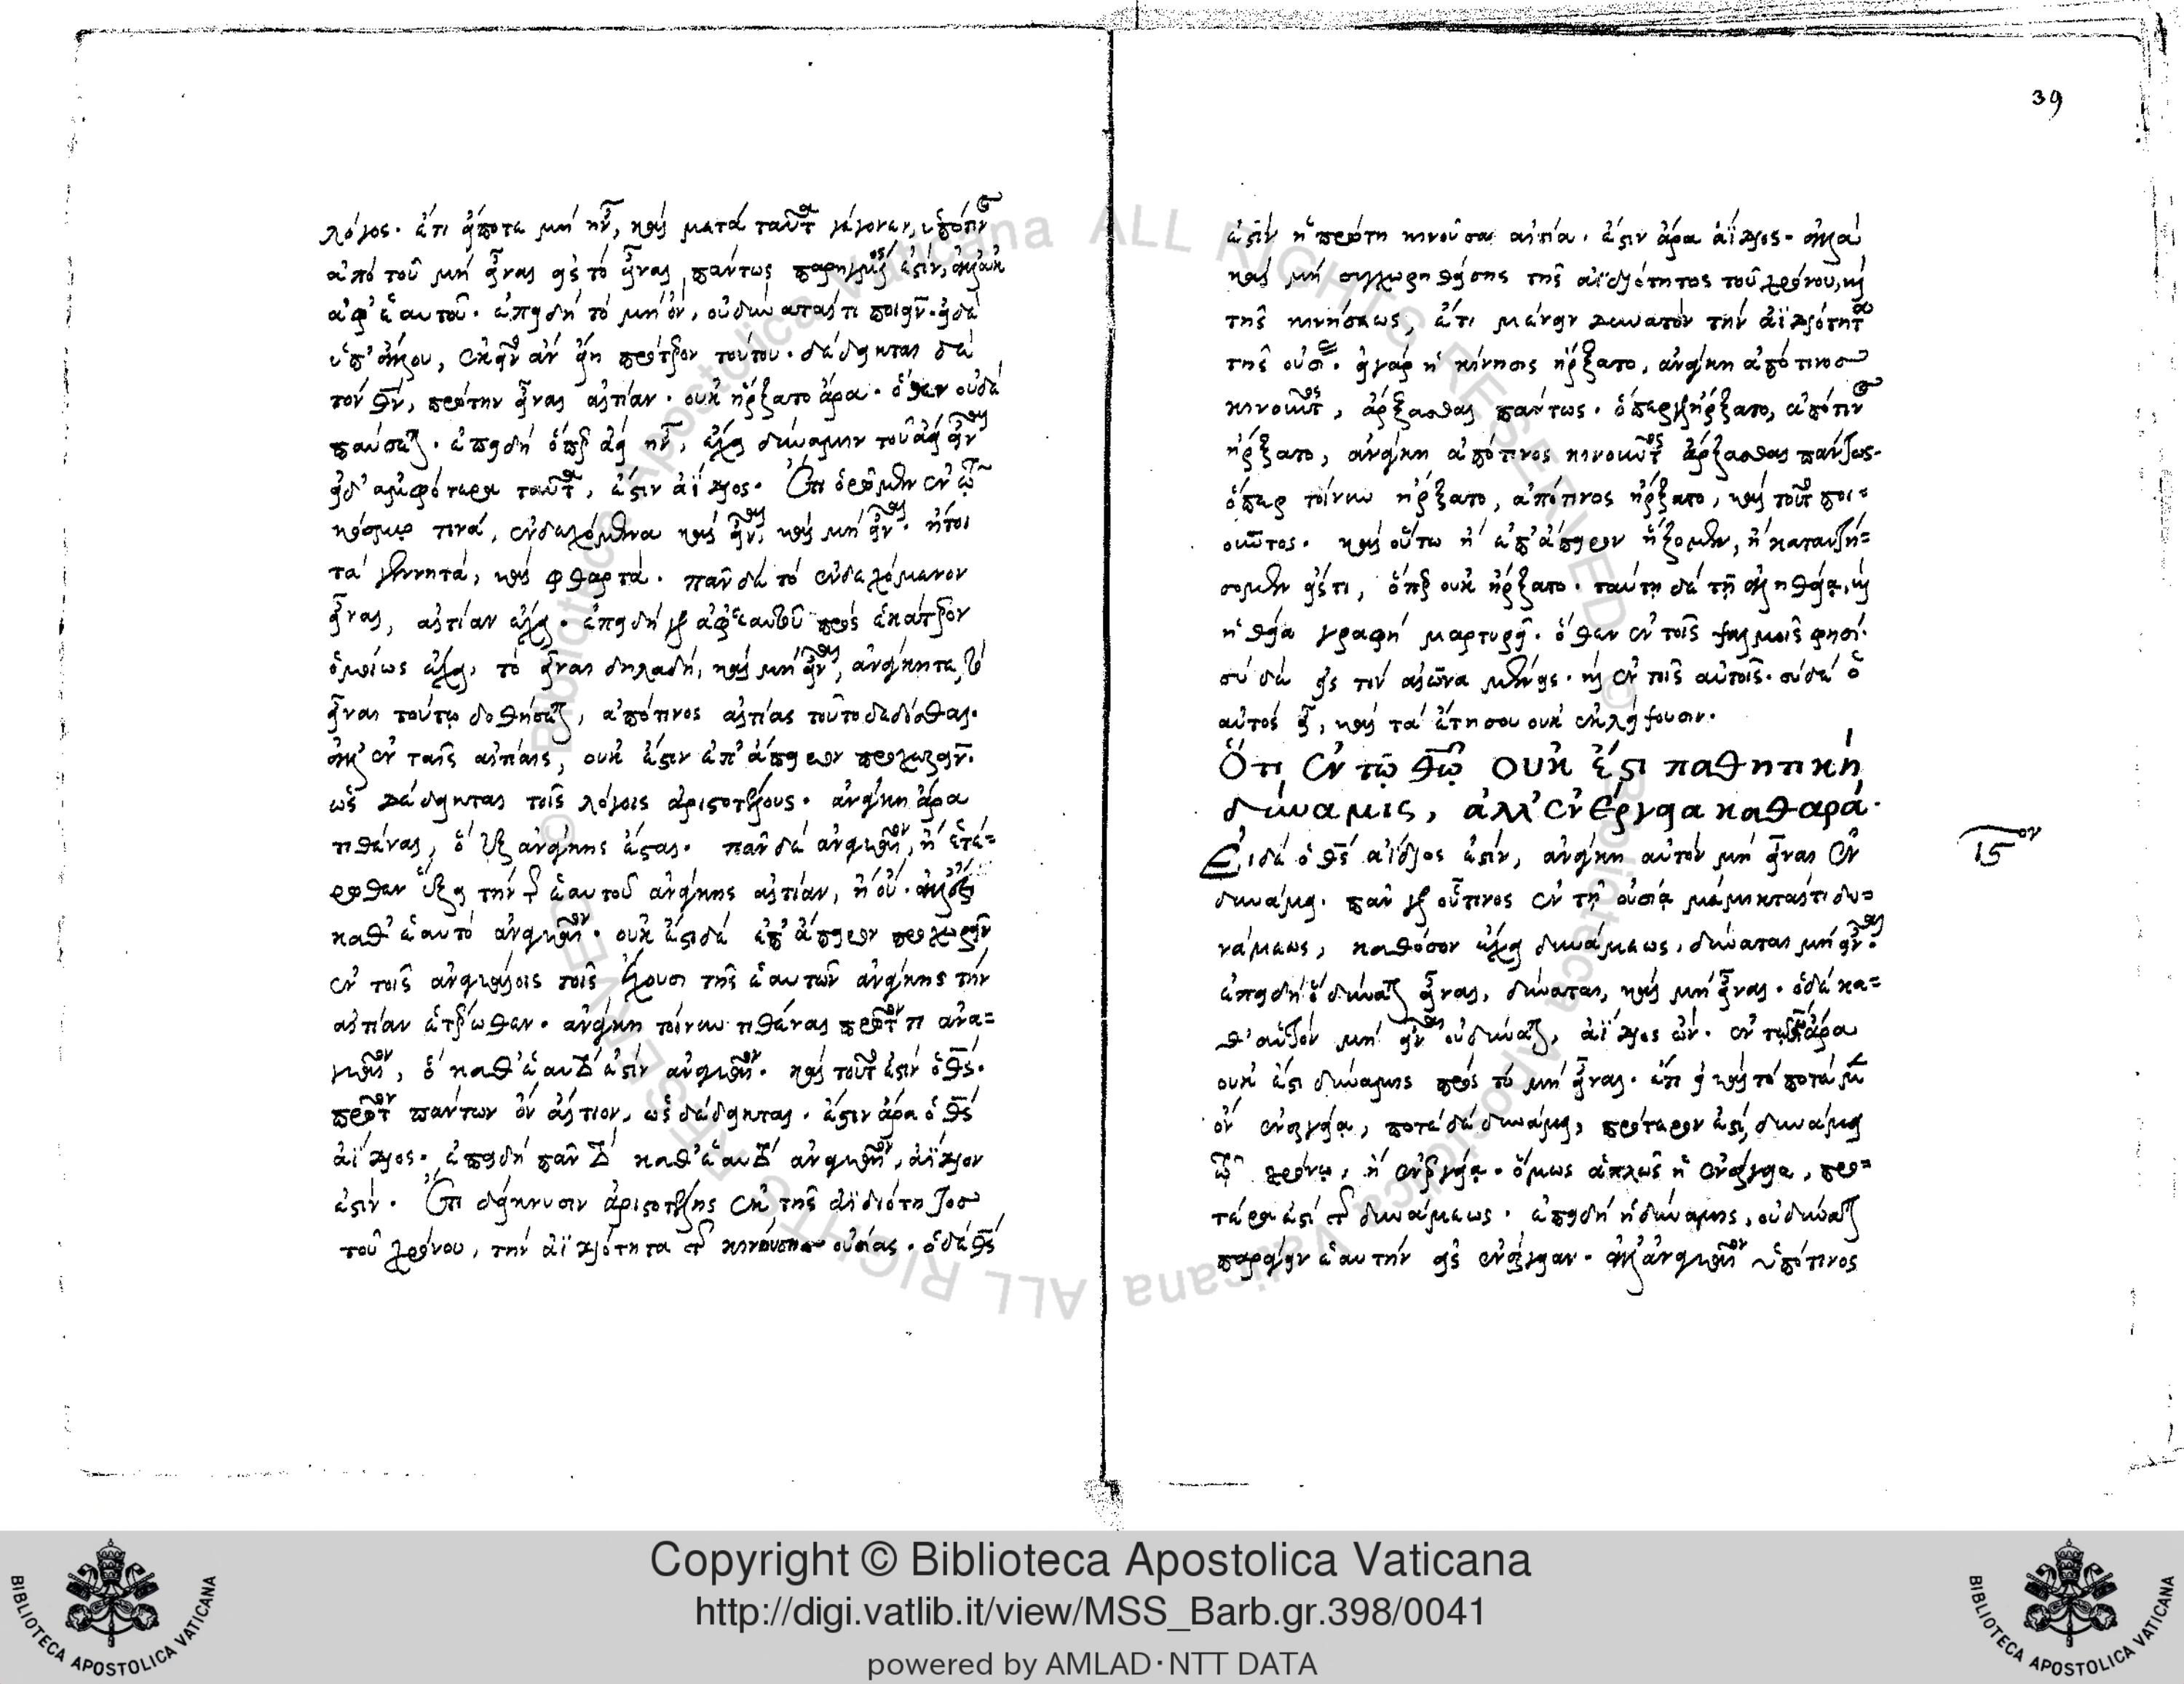 λόγος· ἔτι εἴποτε μὴ ἦν, καὶ μετὰ ταῦτα γέγονεν, ὑπό τινος
ἀπὸ τοῦ μὴ εἶναι εἰς τὸ εἶναι, πάντως παρηγμένος ἐστίν, ἀλλ' οὐκ
ἀφ' ἑαυτοῦ· ἐπειδὴ τὸ μὴ ὄν, οὐ δύναταί τι ποιεῖν· εἰ δὲ
ὑπ' ἄλλου, ἐκεῖνο ἂν εἴη πρότερον τούτου· δέδεικται δὲ
τὸν θν, πρώτην εἶναι αἰτίαν· οὐκ ἤρξατο ἄρα· ὅθεν οὐδὲ
παύσεται· ἐπειδὴ ὅπερ ἀεὶ ἦν, ἔχει δύναμιν τοῦ ἀεὶ εἶναι
εἰ δ' ἀμφότερα ταῦτα, ἔστιν ἀΐδιος· Ἔτι ὁρῶμεν ἐν τῷ
κόσμῳ τινὰ, ἐνδεχόμενα καὶ εἶναι, καὶ μὴ εἶναι· ἤτοι
τὰ γεννητὰ, καὶ φθαρτά· πᾶν δὲ τὸ ἐνδεχόμενον
εἶναι, αἰτίαν ἔχει· ἐπειδὴ γὰρ ἀφ' ἑαυτοῦ πρὸς ἑκάτερον
ὁμοίως ἔχει, τὸ εἶναι δηλαδὴ, καὶ μὴ εἶναι, ἀνάγκη τὸ
εἶναι τούτῳ δοθήσεται, ἀπό τινος αἰτίας τοῦτο δεδόσθαι·
ἀλλ' ἐν ταῖς αἰτίαις, οὐκ ἔστιν ἐπ' ἄπειρον προχωρεῖν·
ὡς δέδεικται τοῖς λόγοις ἀριστοτέλους· ἀνάγκη ἄρα
τιθέναι, ὃ ἐξ ἀνάγκης ἔσται· πᾶν δὲ ἀναγκαῖον, ἢ ἑτέ=
ρωθεν ἔχει τὴν τῆς ἑαυτοῦ ἀνάγκης αἰτίαν, ἢ οὔ· ἀλλ' ἔστι
καθ' ἑαυτὸ ἀναγκαῖον· οὐκ ἔστι δὲ ἐπ' ἄπειρον προχωρεῖν
ἐν τοῖς ἀναγκαίοις τοῖς ἔχουσι τῆς ἑαυτῶν ἀνάγκης τὴν
αἰτίαν ἑτέρωθεν· ἀνάγκη τοίνυν τιθέναι πρῶτόν τι ἀνα=
γκαῖον, ὃ καθ' ἑαυτό ἐστιν ἀναγκαῖον· καὶ τοῦτό ἐστιν ὁ θς·
πρῶτον πάντων ὂν αἴτιον, ὡς δέδεικται· ἔστιν ἄρα ὁ θς
ἀΐδιος· ἐπειδὴ πᾶν τὸ καθ' ἑαυτὸ ἀναγκαῖον, ἀΐδιον
ἐστίν· Ἔτι δείκνυσιν ἀριστοτέλης ἐκ τῆς ἀϊδιότητος
τοῦ χρόνου, τὴν ἀϊδιότητα τῆς κινούσης οὐσίας· ὁ δὲ θς
39
ἐστὶν ἡ πρώτη κινοῦσα αἰτία· ἔστιν ἄρα ἀΐδιος· ἀλλὰ
καὶ μὴ συγχωρηθείσης τῆς ἀϊδιότητος τοῦ χρόνου, καὶ
τῆς κινήσεως, ἔτι μένειν δυνατὸν τὴν ἀϊδιότητα
τῆς οὐσίας· εἰ γὰρ ἡ κίνησις ἤρξατο, ἀνάγκη ἀπό τινος
κινοῦντος, ἄρξασθαι πάντως· ὅπερ εἰ ἤρξατο, ἀπό τινος
ἤρξατο, ἀνάγκη ἀπό τινος κινοῦντος ἄρξασθαι πάντως·
ὅπερ τοίνυν ἤρξατο, ἀπό τινος ἤρξατο, καὶ τοῦτο ποι=
οῦντος· καὶ οὕτω ἢ ἐπ' ἄπειρον ἥξομεν, ἢ καταντή=
σομεν εἴς τι, ὅπερ οὐκ ἤρξατο· ταύτῃ δὲ τῇ ἀληθείᾳ, καὶ
ἡ θεία γραφὴ μαρτυρεῖ· ὅθεν ἐν τοῖς ψαλμοῖς φησί·
σὺ δὲ εἰς τὸν αἰῶνα μένεις· καὶ ἐν τοῖς αὐτοῖς· σὺ δὲ ὁ
αὐτὸς εἶ, καὶ τὰ ἔτη σου οὐκ ἐκλείψουσιν·
Ὅτι ἐν τῷ θῷ οὐκ ἔστι παθητικὴ
δύναμις, ἀλλ' ἐνέργεια καθαρά·
15ον
Εἰ δὲ ὁ θς ἀΐδιος ἐστὶν, ἀνάγκη αὐτὸν μὴ εἶναι ἐν
δυνάμει· πᾶν γὰρ οὗτινος ἐν τῇ οὐσίᾳ μέμικταί τι δυ=
νάμεως, καθόσον ἔχει δυνάμεως, δύναται μὴ εἶναι·
ἐπειδὴ ὃ δύναται εἶναι, δύναται, καὶ μὴ εἶναι· ὁ δὲ κα=
θ' αὑτὸν μὴ εἶναι οὐ δύναται, ἀΐδιος ὤν· ἐν τῷ θῷ ἄρα
οὐκ ἔστι δύναμις πρὸς τὸ μὴ εἶναι· ἔτι εἰ καὶ τὸ ποτὲ μὲν
ὂν ἐνεργείᾳ, ποτὲ δὲ δυνάμει, πρότερον ἐστὶ, δυνάμει
τῷ χρόνῳ, ἢ ἐνεργείᾳ· ὅμως ἁπλῶς ἡ ἐνέργεια, προ=
τέρα ἐστὶ τῆς δυνάμεως· ἐπειδὴ ἡ δύναμις, οὐ δύναται
παράγειν ἑαυτὴν εἰς ἐνέργειαν· ἀλλ' ἀναγκαῖον ὑπό τινος